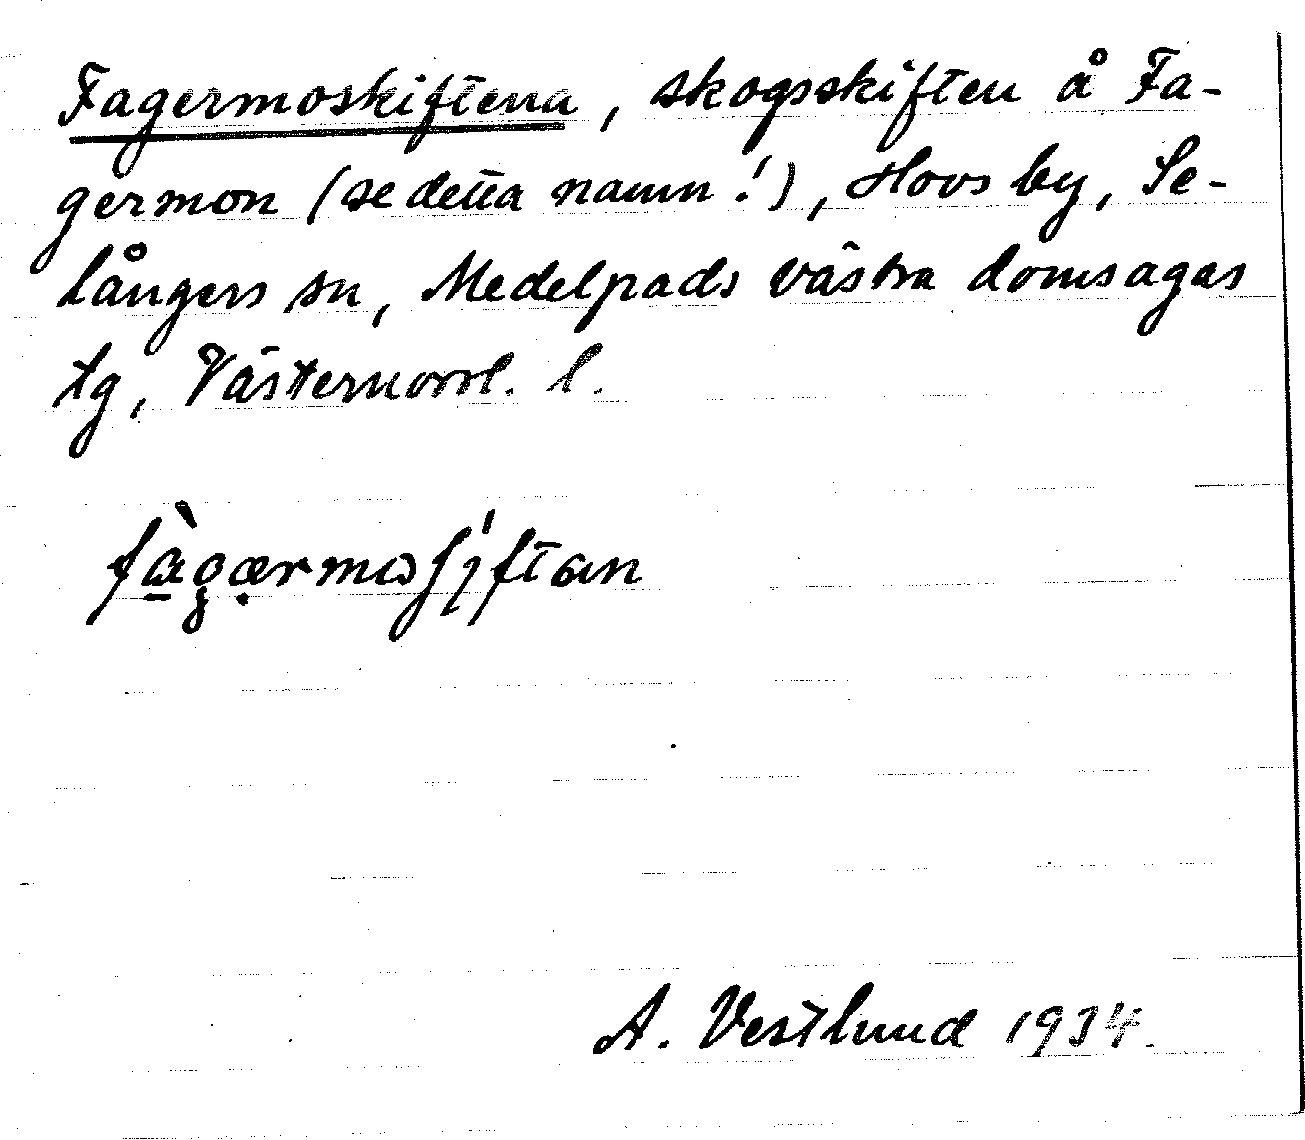 Fagermoskiftena, skogsskiften å Fa-
germon (se detta namn!), Hovs by, Se-
långers sn, Medelpads västra domsagas
tg, Västernorrl. l.
fàgærmoʃiftan
A. Vestlund 1934.